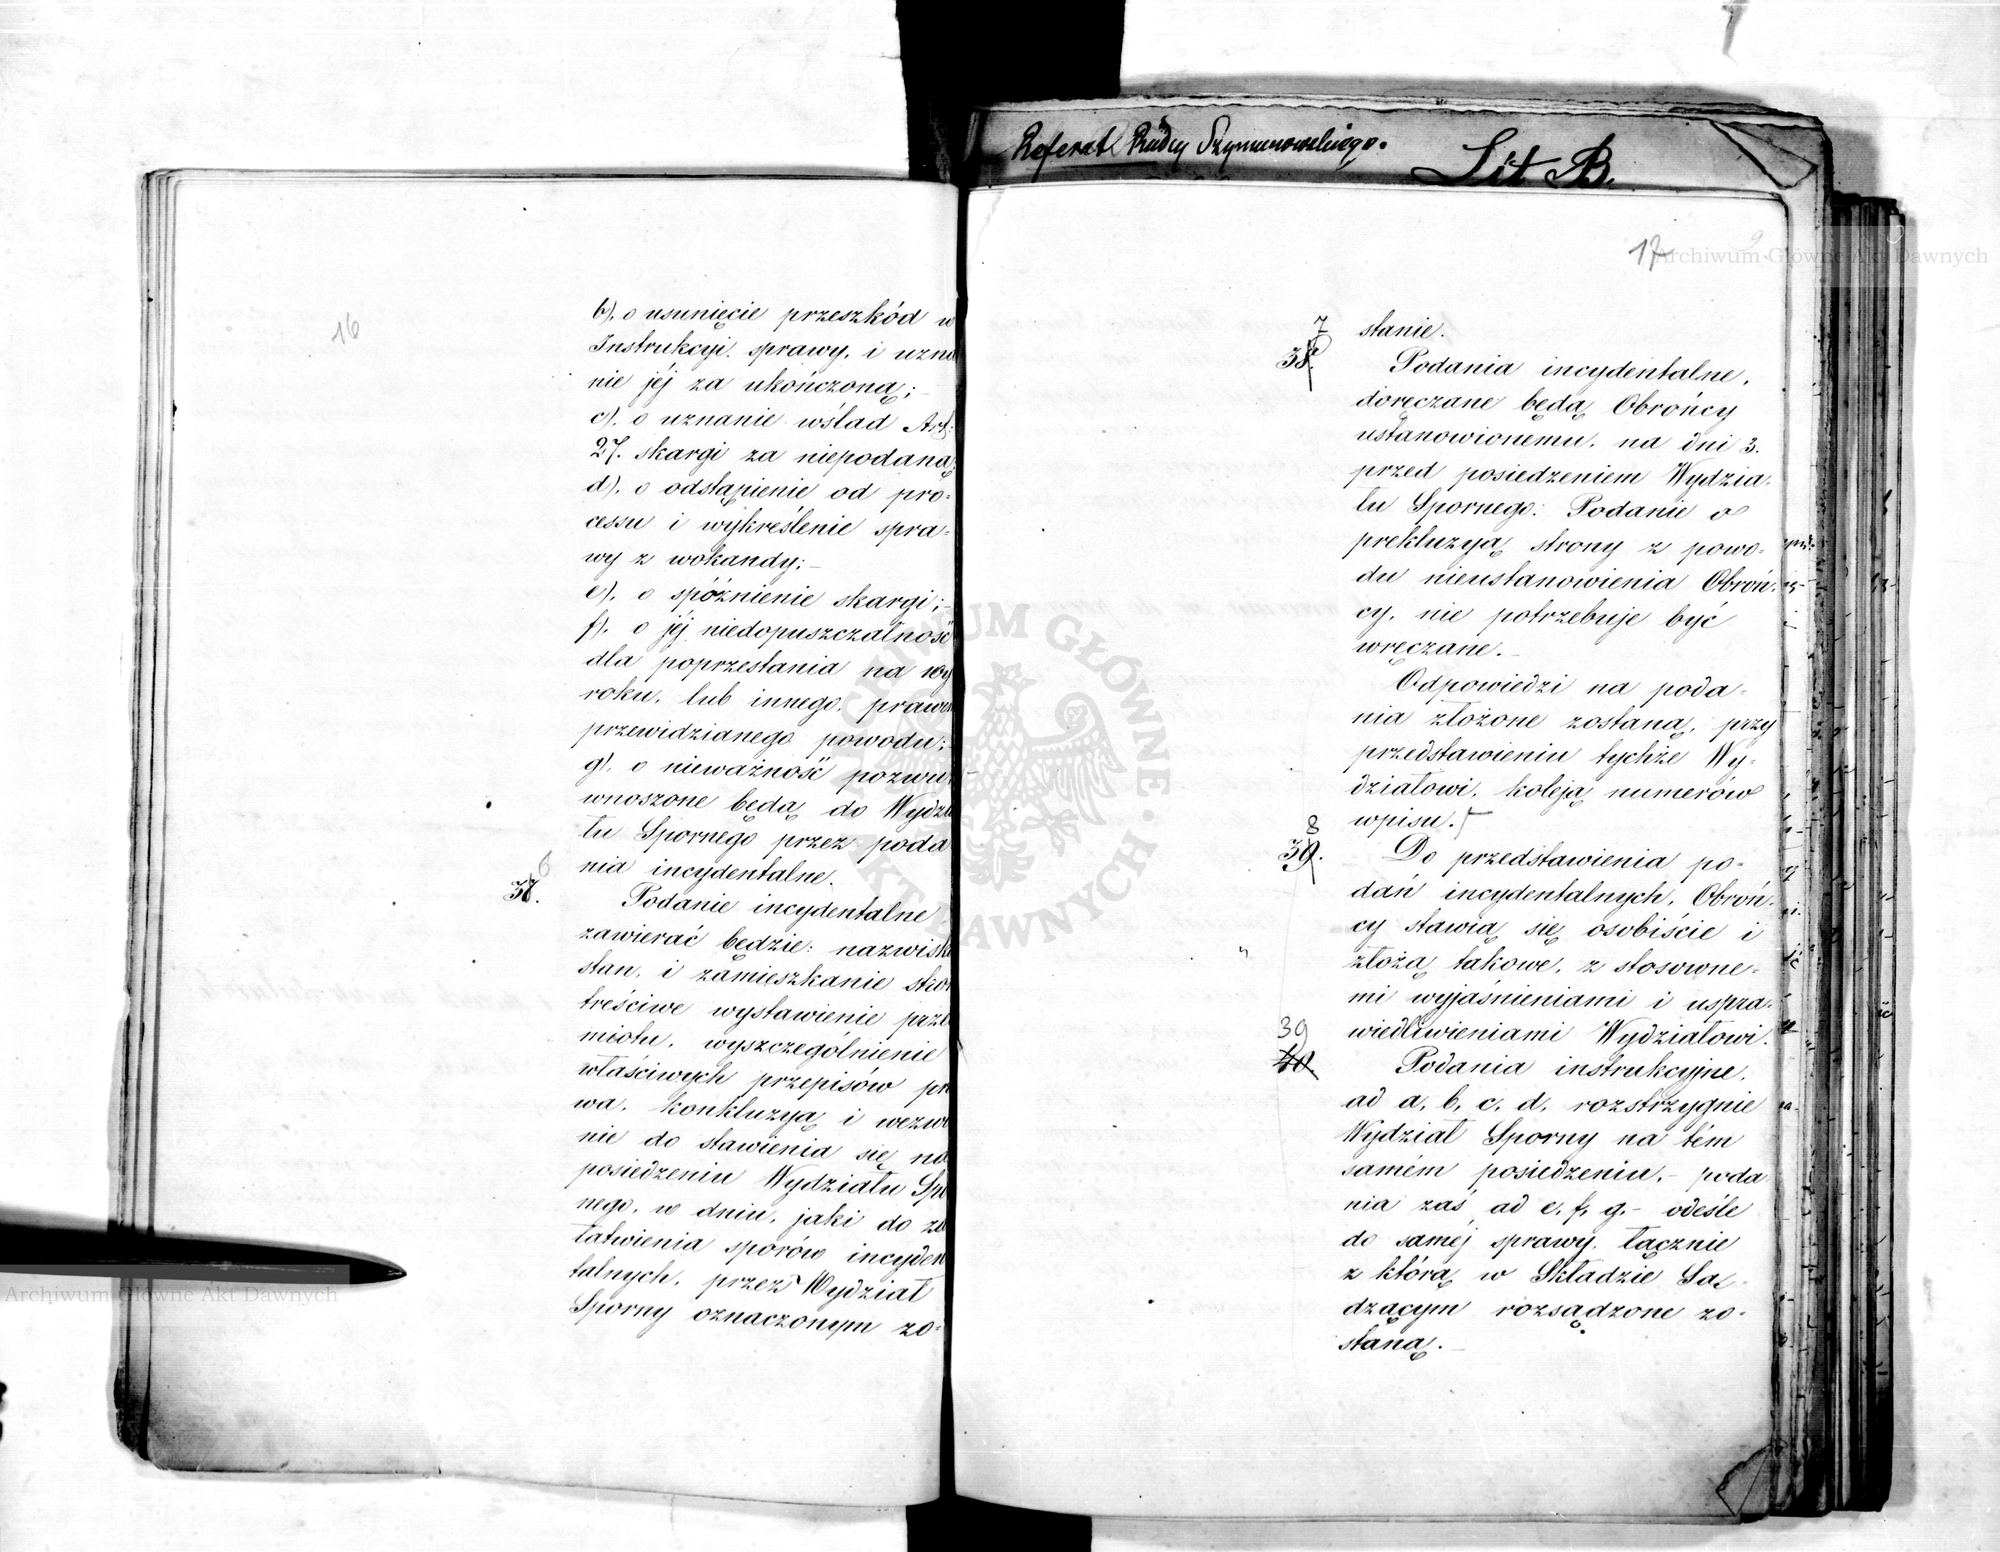 16
b). o usunięcie przeszkód w
Instrukcyi sprawy, i uzna
nie jéj za ukończoną;
c). o uznanie wślad Art:
27. skargi za niepodaną;
d). o odstąpienie od pro-
cessu i wykreślenie spra-
wy z wokandy;
e). o spóźnienie skargi;
f). o jéj niedopuszczalność
dla poprzestania na wy
roku, lub innego, prawem
przewidzianego powodu;
g). o nieważność pozwu
wnoszone będą do Wydzia
łu Spornego przez poda
nia incydentalne.
6
37. Podanie incydentalne
zawierać będzie: nazwisko
stan, i zamieszkanie stron
treściwe wystawienie przed
miotu, wyszczególnienie
właściwych przepisów pra
wa, konkluzyą i wezwa
nie do stawienia się na
posiedzeniu Wydziału Spo
nego, w dniu, jaki do za
łatwienia sporów incyden
talnych, przez Wydział
Sporny oznaczonym zo-
Referat Radcy Szymanowskiego.
Lit B.
17
stanie.
7
38. Podania incydentalne,
doręczane będą Obrońcy
ustanowionemu, na dni 3.
przed posiedzeniem Wydzia-
łu Spornego: Podanie o
prekluzyą strony z powo-
du nieustanowienia Obroń-
cy, nie potrzebuje być
wręczane.
Odpowiedzi na poda-
nia złożone zostaną, przy
przedstawieniu tychże Wy-
działowi, koleją numerów
wpisu.
8
39. Do przedstawienia po-
dań incydentalnych, Obroń-
cy stawią się osobiście i
złożą takowe, z stosowne-
mi wyjaśnieniami i uspra-
wiedliwieniami Wydziałowi.
39
40. Podania instrukcyjne,
ad a, b, c, d, rozstrzygnie
Wydział Sporny na tém
samém posiedzeniu,- poda
nia zaś ad e, f, g,- odeśle
do saméj sprawy, łącznie
z którą w Składzie Są-
dzącym rozsądzone zo-
staną.
Archiwum Główne Akt Dawnych
Archiwum Główne Akt Dawnych
ARCHIWUM GŁÓWNE AKT DAWNYCH